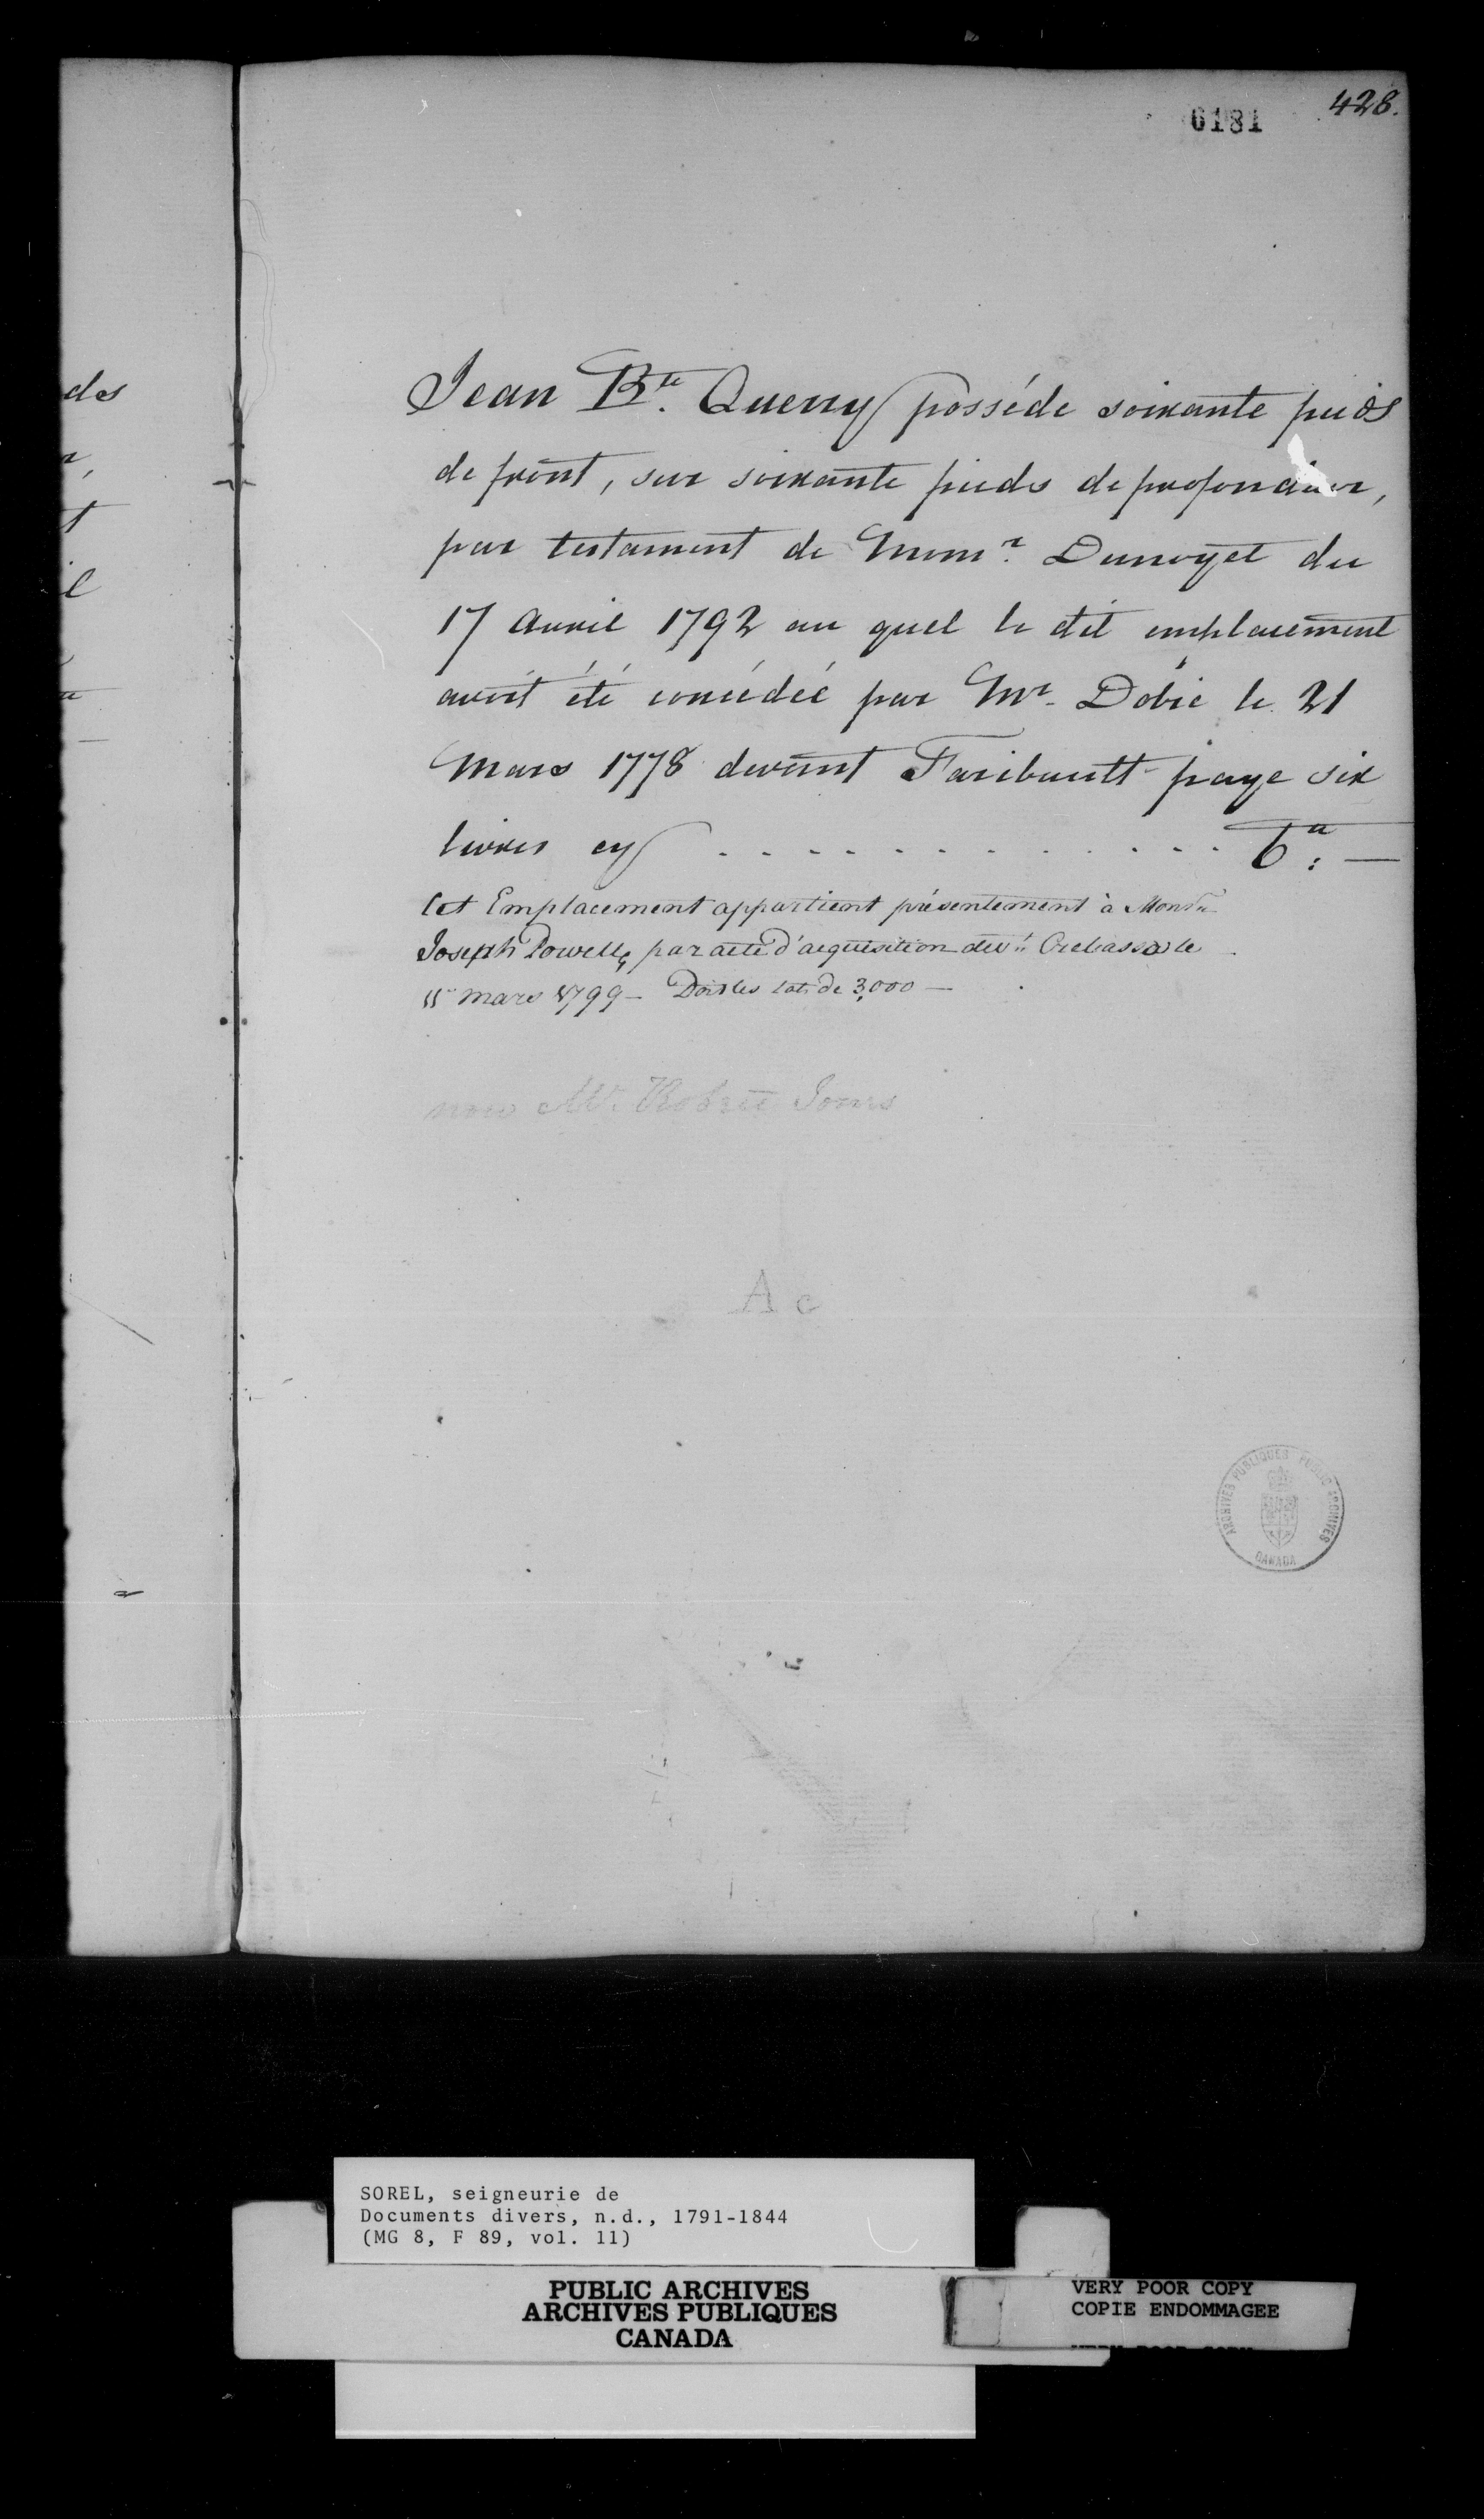 428.
6181
des
t
il
Jean Bte. Querry posséde soixante pieds
de front, sur soixante pieds de profondeur,
par testament de Dunoyet du
17 avril 1792 au quel le dit emplacement
avoit été concédée par Mr. Dobie le 21
Mars 1778 devant Faribault paye six
livres cy . . . . . . . . . . . . 6tt: —
Cet Emplacement appartient présentement à Monsr
Joseph Powell, par acte d'acquisition devt Crebassa le
11 mars 1799 — Doit les lots de 3,000 —
now Mr. Robert Jones
A c
ARCHIVES PUBLIQUES PUBLIC ARCHIVES
CANADA
SOREL, seigneurie de
Documents divers, n.d., 1791-1844
(MG 8, F 89, vol. 11)
PUBLIC ARCHIVES
ARCHIVES PUBLIQUES
CANADA
VERY POOR COPY
COPIE ENDOMMAGEE